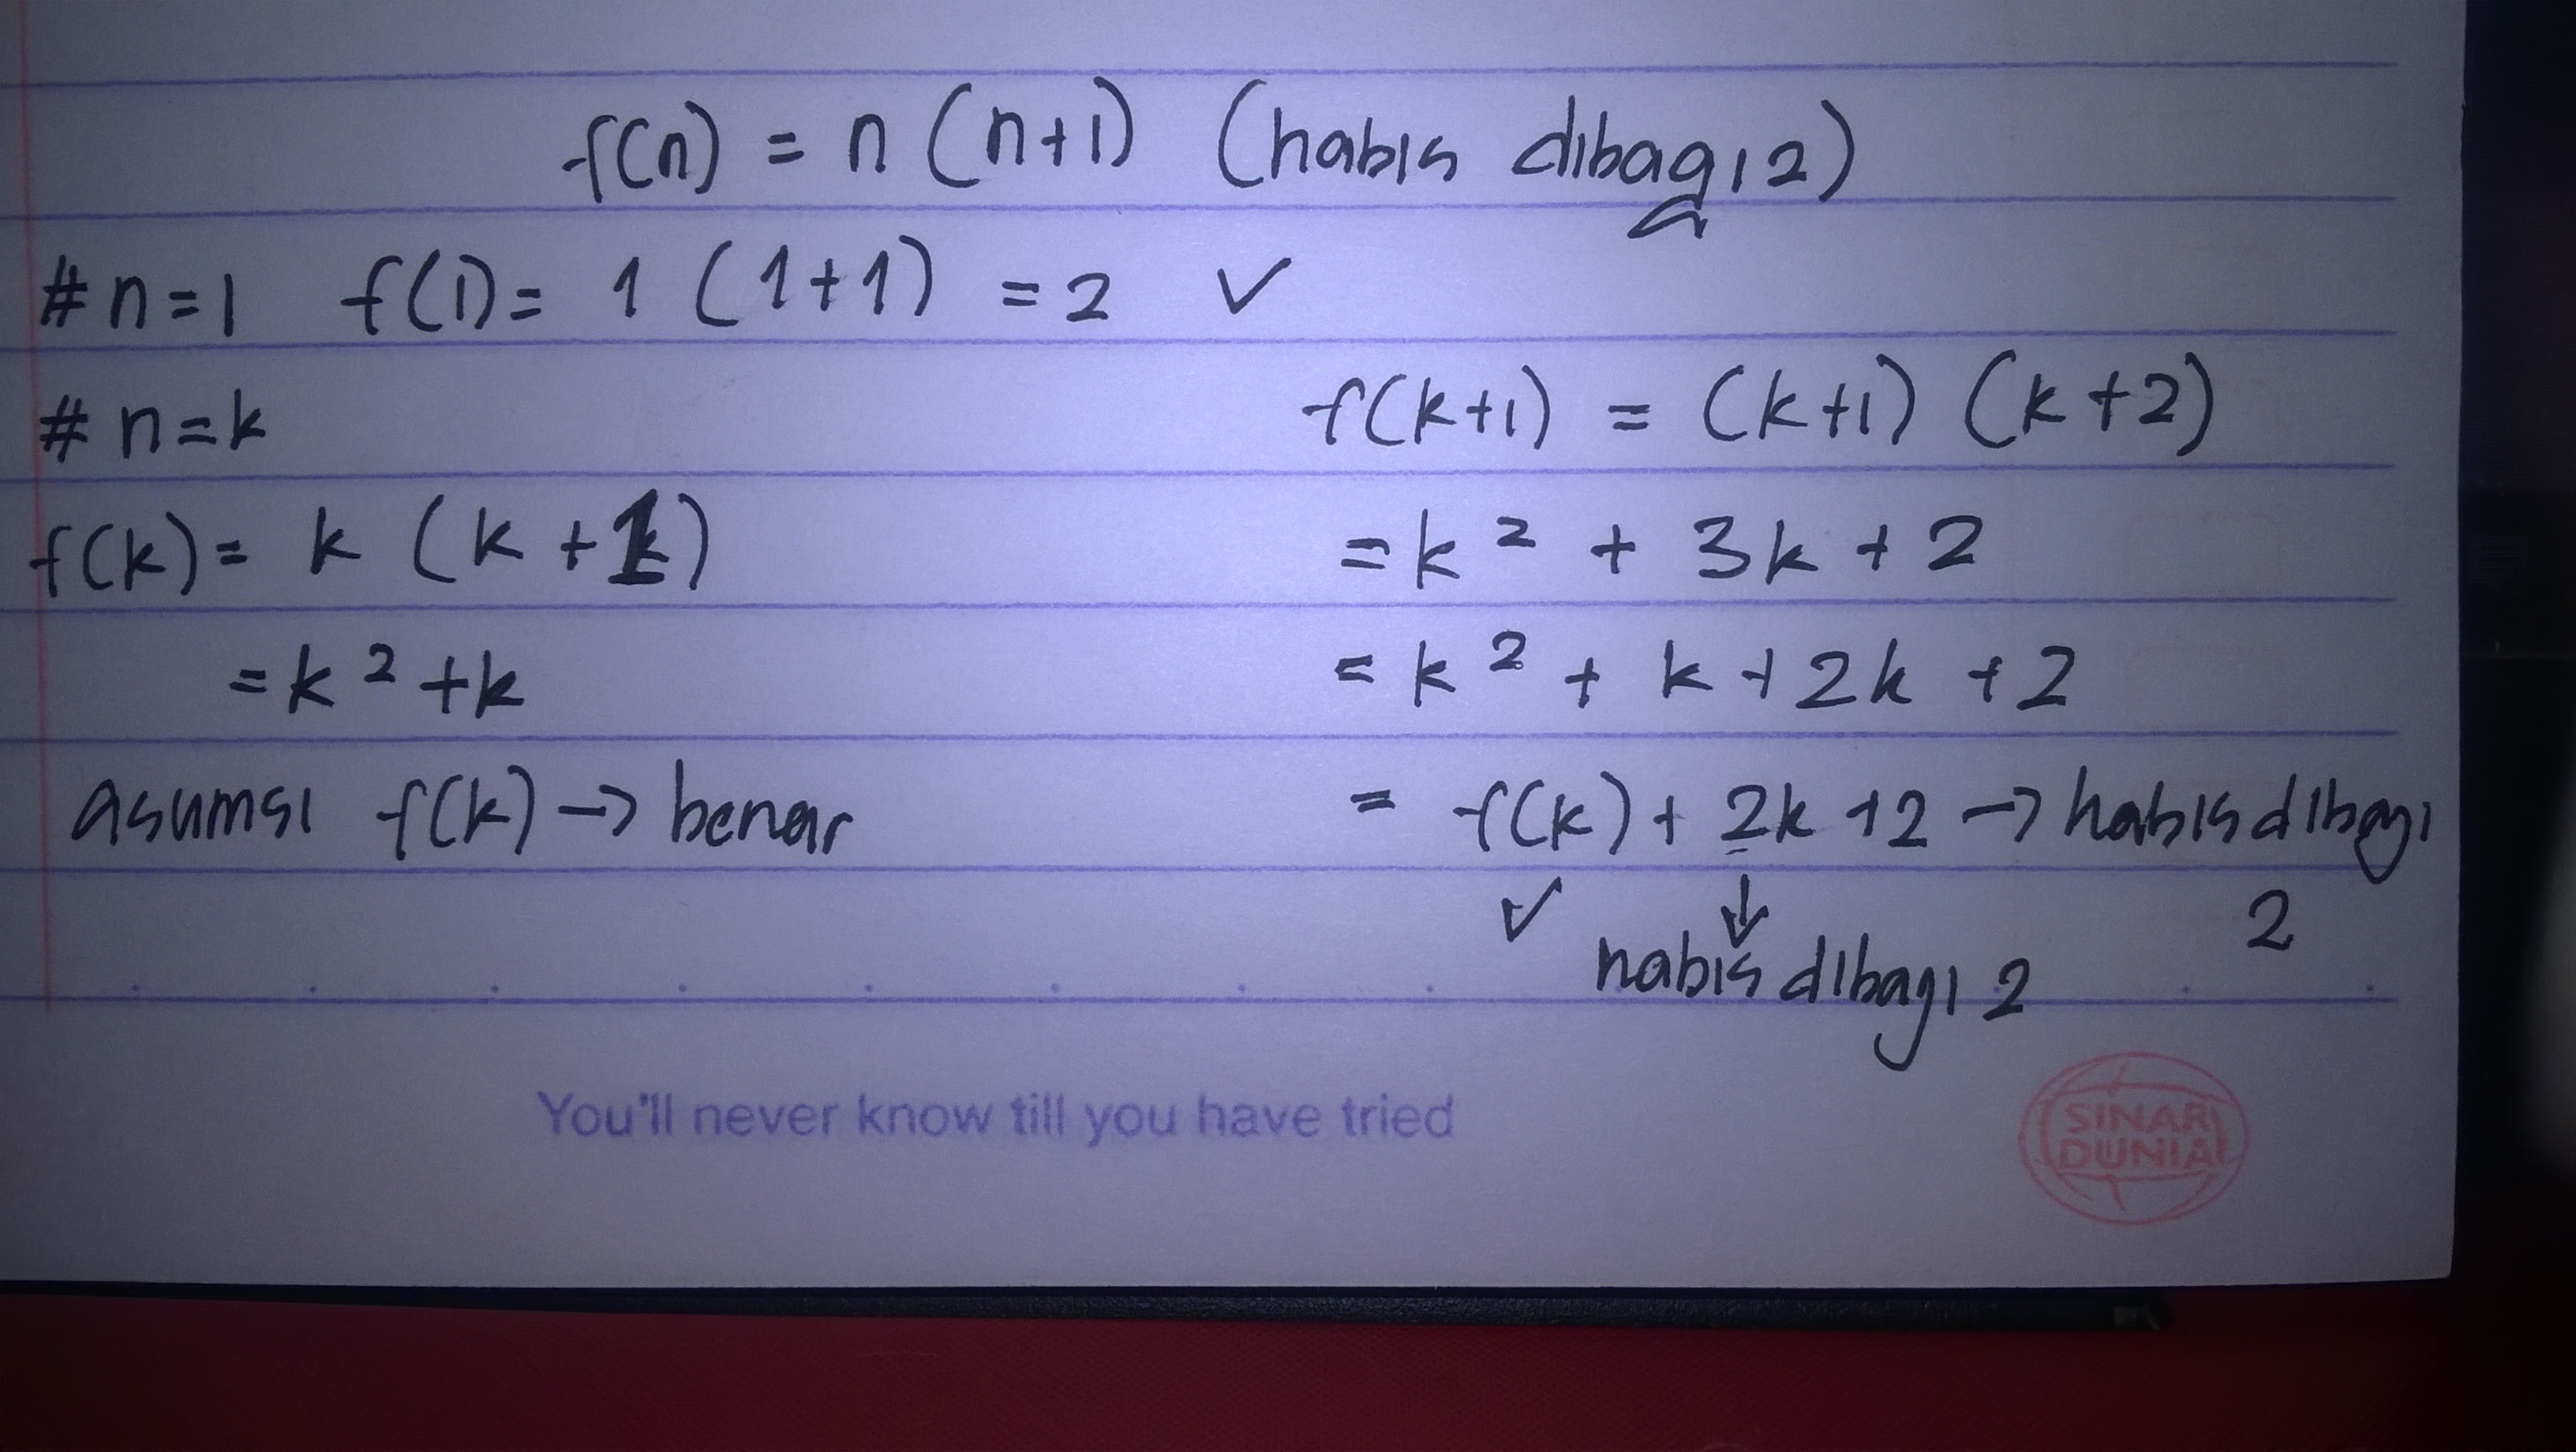 f(n) = n (n+1) (habis dibagi 2)
# n=1 f(1)= 1 (1+1) =2 ✓
# n=k
f(k)= k (k+1)
=k² +k
asumsi f(k) → benar
f(k+1) = (k+1) (k+2)
=k² + 3k + 2
= k² + k +2k +2
= f(k) + 2k +2 → habis dibagi
2
✓ ↓
habis dibagi 2
You'll never know till you have tried
SINAR
DUNIA